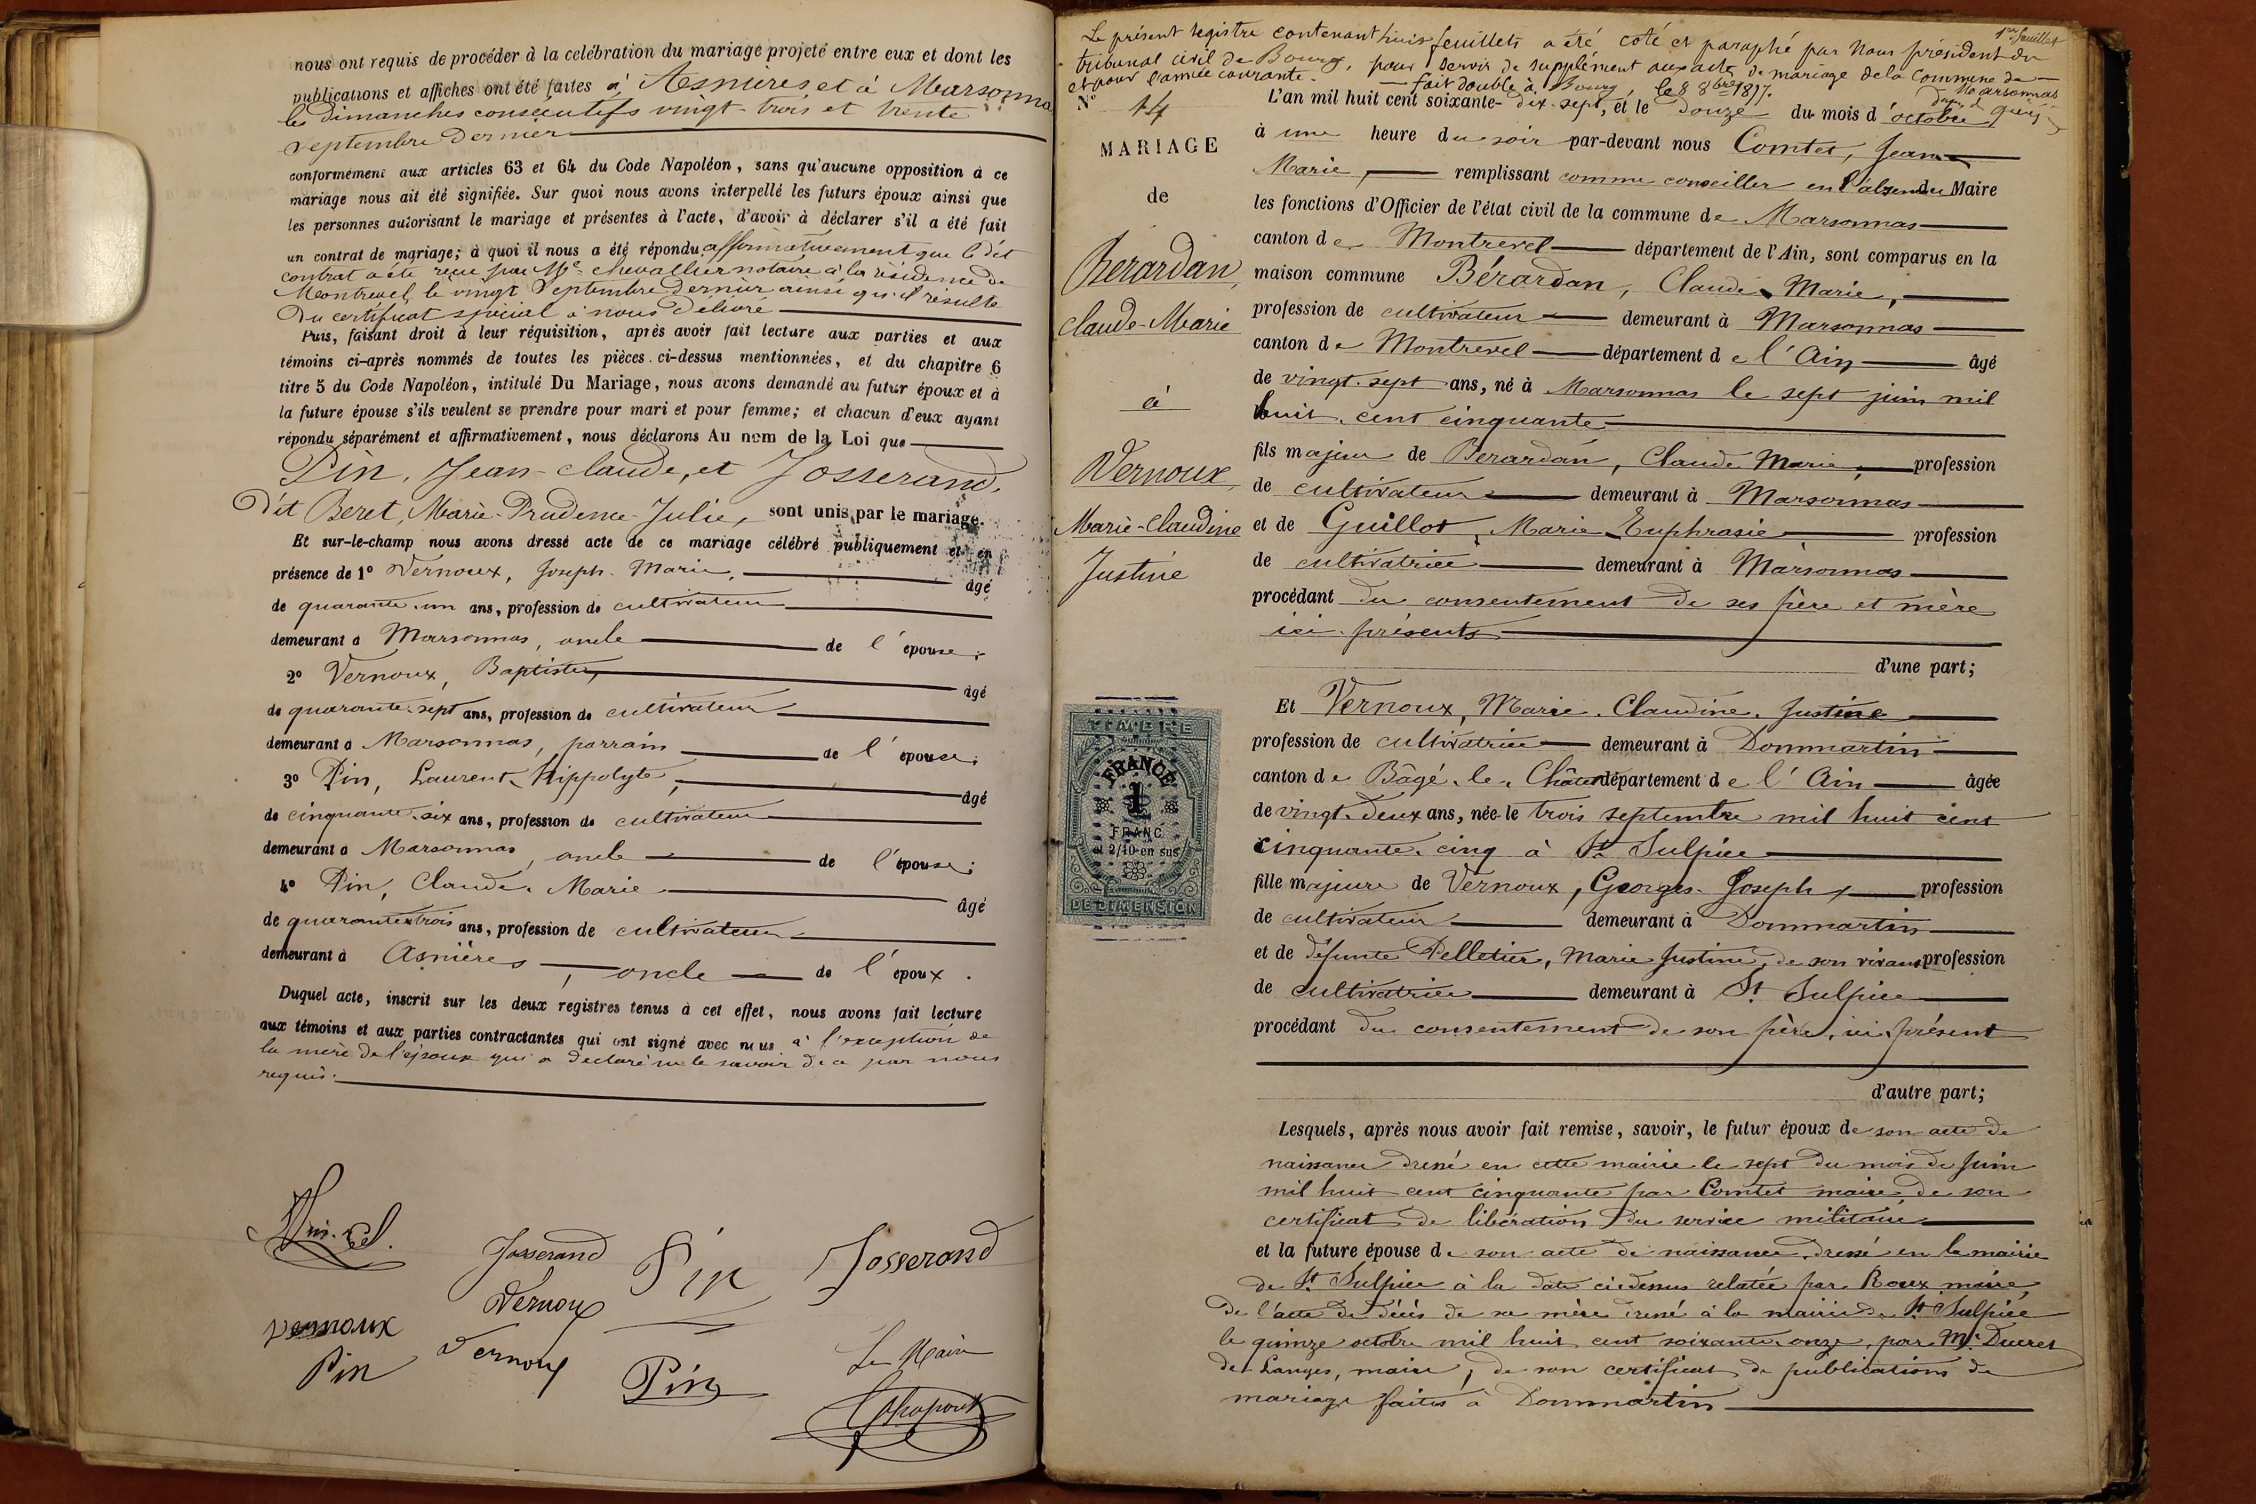 nous ont requis de procéder à la celébration du mariage projeté entre eux et dont les
publications et affiches ont été faites à Asnières et à Marsonnas
les dimanches consécutifs vingt-trois et trente
septembre dernier
conformément aux articles 63 et 64 du Code Napoléon, sans qu'aucune opposition à ce
mariage nous ait été signifiée. Sur quoi nous avons interpellé les futurs époux ainsi que
les personnes autorisant le mariage et présentes à l'acte, d'avoir à déclarer s'il a été fait
un contrat de mariage; à quoi il nous a été répondu affirmativement que le dit
contrat a été reçu par Me Chevallier notaire à la résidence de
Montrevel le vingt Septembre dernier ainsi qu'il résulte
du certificat spécial à nous délivré
Puis, faisant droit à leur réquisition, après avoir fait lecture aux parties et aux
témoins ci-après nommés de toutes les pièces ci-dessus mentionnées, et du chapitre 6
titre 5 du Code Napoléon, intitulé Du Mariage, nous avons demandé au futur époux et à
la future épouse s'ils veulent se prendre pour mari et pour femme; et chacun d'eux ayant
répondu séparément et affirmativement, nous déclarons Au nom de la Loi que
Pin, Jean-Claude, et Josserand,
dit Beret, Marie-Prudence-Julie, sont unis par le mariage.
Et sur-le-champ nous avons dressé acte de ce mariage célébré publiquement et en
présence de 1° Vernoux, Joseph-Marie, âgé
de quarante-un ans, profession de cultivateur
demeurant à Marsonnas, oncle de l'épouse;
2° Vernoux, Baptiste, âgé
de quarante-sept ans, profession de cultivateur
demeurant à Marsonnas, parrain de l'épouse;
3° Pin, Laurent-Hippolyte, âgé
de cinquante-six ans, profession de cultivateur
demeurant à Marsonnas, oncle de l'épouse;
4° Pin, Claude-Marie âgé
de quarante-trois ans, profession de cultivateur
demeurant à Asnières, oncle de l'époux.
Duquel acte, inscrit sur les deux registres tenus à cet effet, nous avons fait lecture
aux témoins et aux parties contractantes qui ont signé avec nous à l'exception de
la mère de l'époux qui a déclaré ne le savoir de ce par nous
requis.
Josserand Pin Josserand
Vernoux
vernoux Vernoux
Pin Pin Le Maire
Le présent registre contenant huit feuillets a été coté et paraphé par Nous président du
1er feuillet
tribunal civil de Bourg, pour servir de supplément aux actes de mariage de la Commune de
Marsonnas
et pour l'année courante. fait double à Bourg, le 8 8bre 1877.
N° 14
MARIAGE
de
Berardan,
Claude-Marie
à
Vernoux,
Marie-Claudine
Justine
TIMBRE
FRANCE
1
FRANC
et 2/10 en sus
DE DIMENSION
L'an mil huit cent soixante-dix-sept, et le douze du mois d'octobre
à une heure du soir par-devant nous Comtet, Jean
Marie, remplissant comme conseiller en l'absence du Maire
les fonctions d'Officier de l'état civil de la commune de Marsonnas
canton de Montrevel département de l'Ain, sont comparus en la
maison commune Bérardan, Claude Marie,
profession de cultivateur demeurant à Marsonnas
canton de Montrevel département de l'Ain âgé
de vingt-sept ans, né à Marsonnas le sept juin mil
huit cent cinquante
fils majeur de Berardan, Claude Marie, profession
de cultivateur demeurant à Marsonnas
et de Guillot, Marie Euphrasie profession
de cultivatrice demeurant à Marsonnas
procédant du consentement de ses père et mère
ici présents
d'une part;
Et Vernoux, Marie-Claudine-Justine
profession de cultivatrice demeurant à Dommartin
canton de Bâgé-le-Châtel département de l'Ain âgée
de vingt-deux ans, née le trois septembre mil huit cent
cinquante-cinq à St Sulpice
fille majeure de Vernoux, Georges-Joseph, profession
de cultivateur demeurant à Dommartin
et de défunte Pelletier, Marie Justine, de son vivant profession
de cultivatrice demeurant à St Sulpice
procédant du consentement de son père, ici présent
d'autre part;
Lesquels, après nous avoir fait remise, savoir, le futur époux de son acte de
naissance dressé en cette mairie le sept du mois de Juin
mil huit cent cinquante par Comtet maire, de son
certificat de libération du service militaire
et la future épouse de son acte de naissance dressé en la mairie
de St Sulpice à la date ci-dessus relatée par Roux maire,
de l'acte de décès de sa mère dressé à la mairie de St Sulpice
le quinze octobre mil huit cent soixante-onze, par Mr Ducret
de Langes, maire, de son certificat de publications de
mariage faites à Dommartin